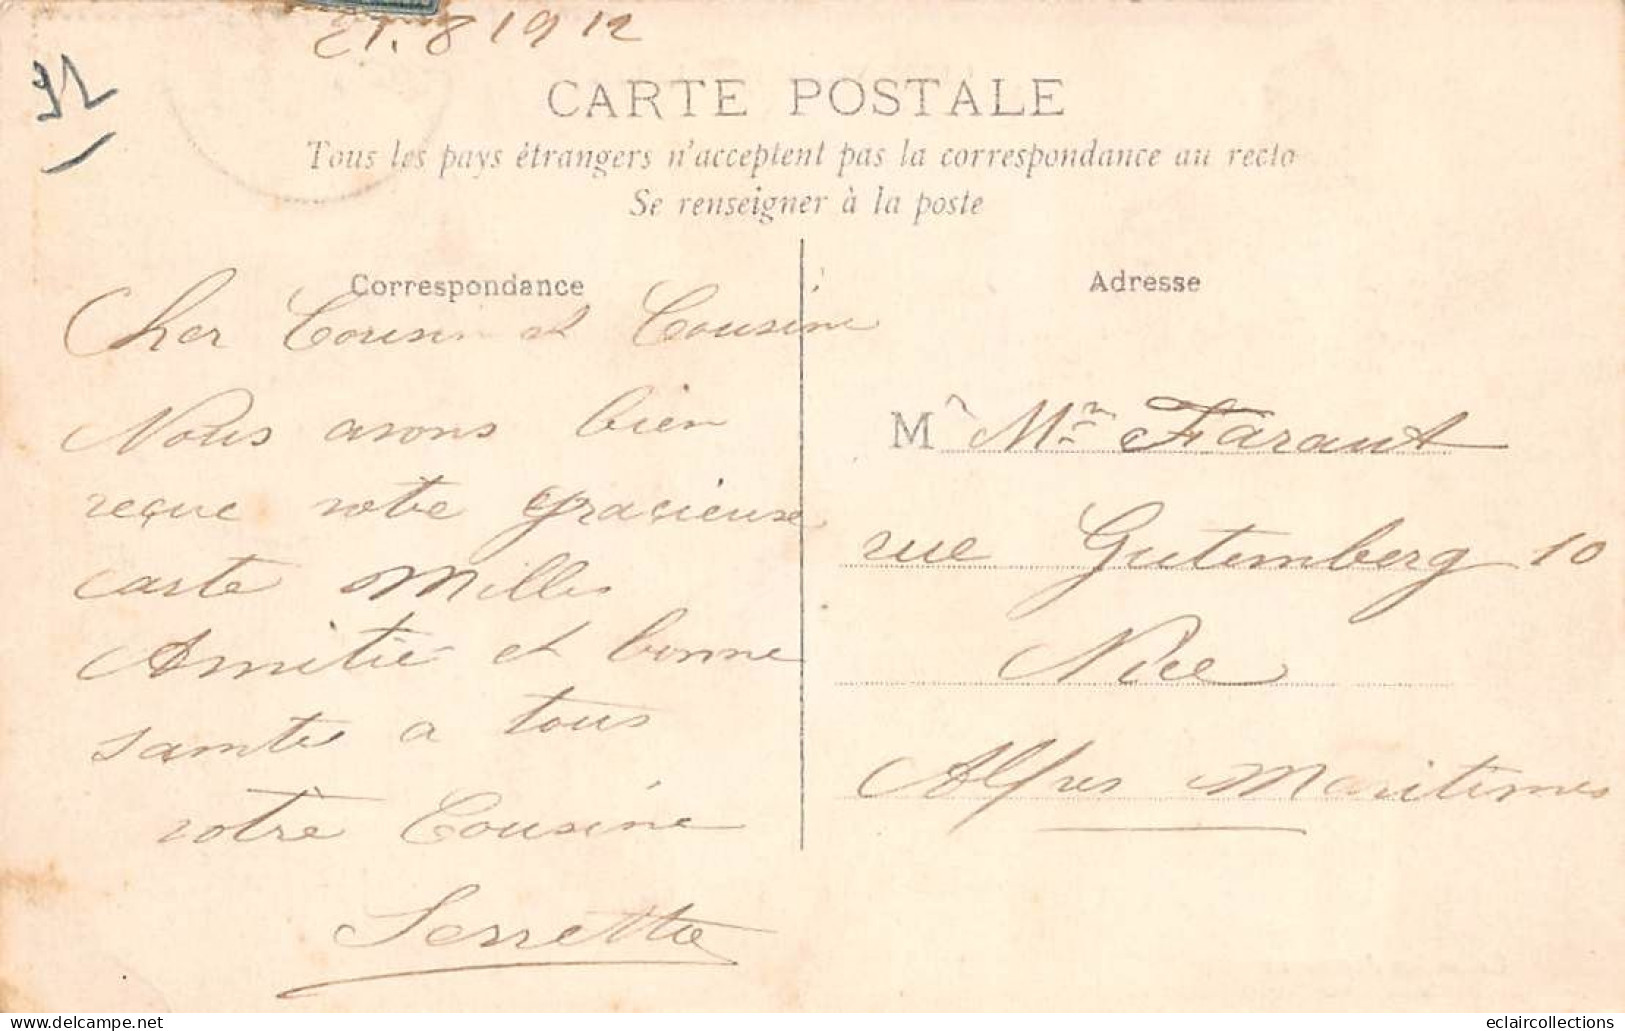 21.8 1912
92
CARTE POSTALE
Tous les pays étrangers n'acceptent pas la correspondance au recto
Se renseigner à la poste
Correspondance
Cher Cousin et Cousine
Nous avons bien
reçue votre gracieuse
carte Milles
Amitie et bonne
samte a tous
votre Cousine
Serrette
Adresse
M à Mr Faraut
rue Gutemberg 10
Nice
Alpes Maritimes
delcampe.net
eclaircollections